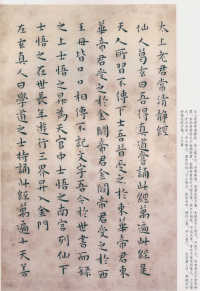 太上老君常清靜經
仙人葛玄曰吾得真道曾誦此經萬遍是
天人所習不傳下士吾昔受之於東華帝君東
華帝君受之於金闕帝君金闕帝君受之於西
王母皆口口相傳不記文字吾今於世書而錄
之上士悟之昇為天官中士悟之南宮列仙下
士悟之在世長年遊行三界昇入金門
左玄真人曰學道之士持誦此經萬遍十天善